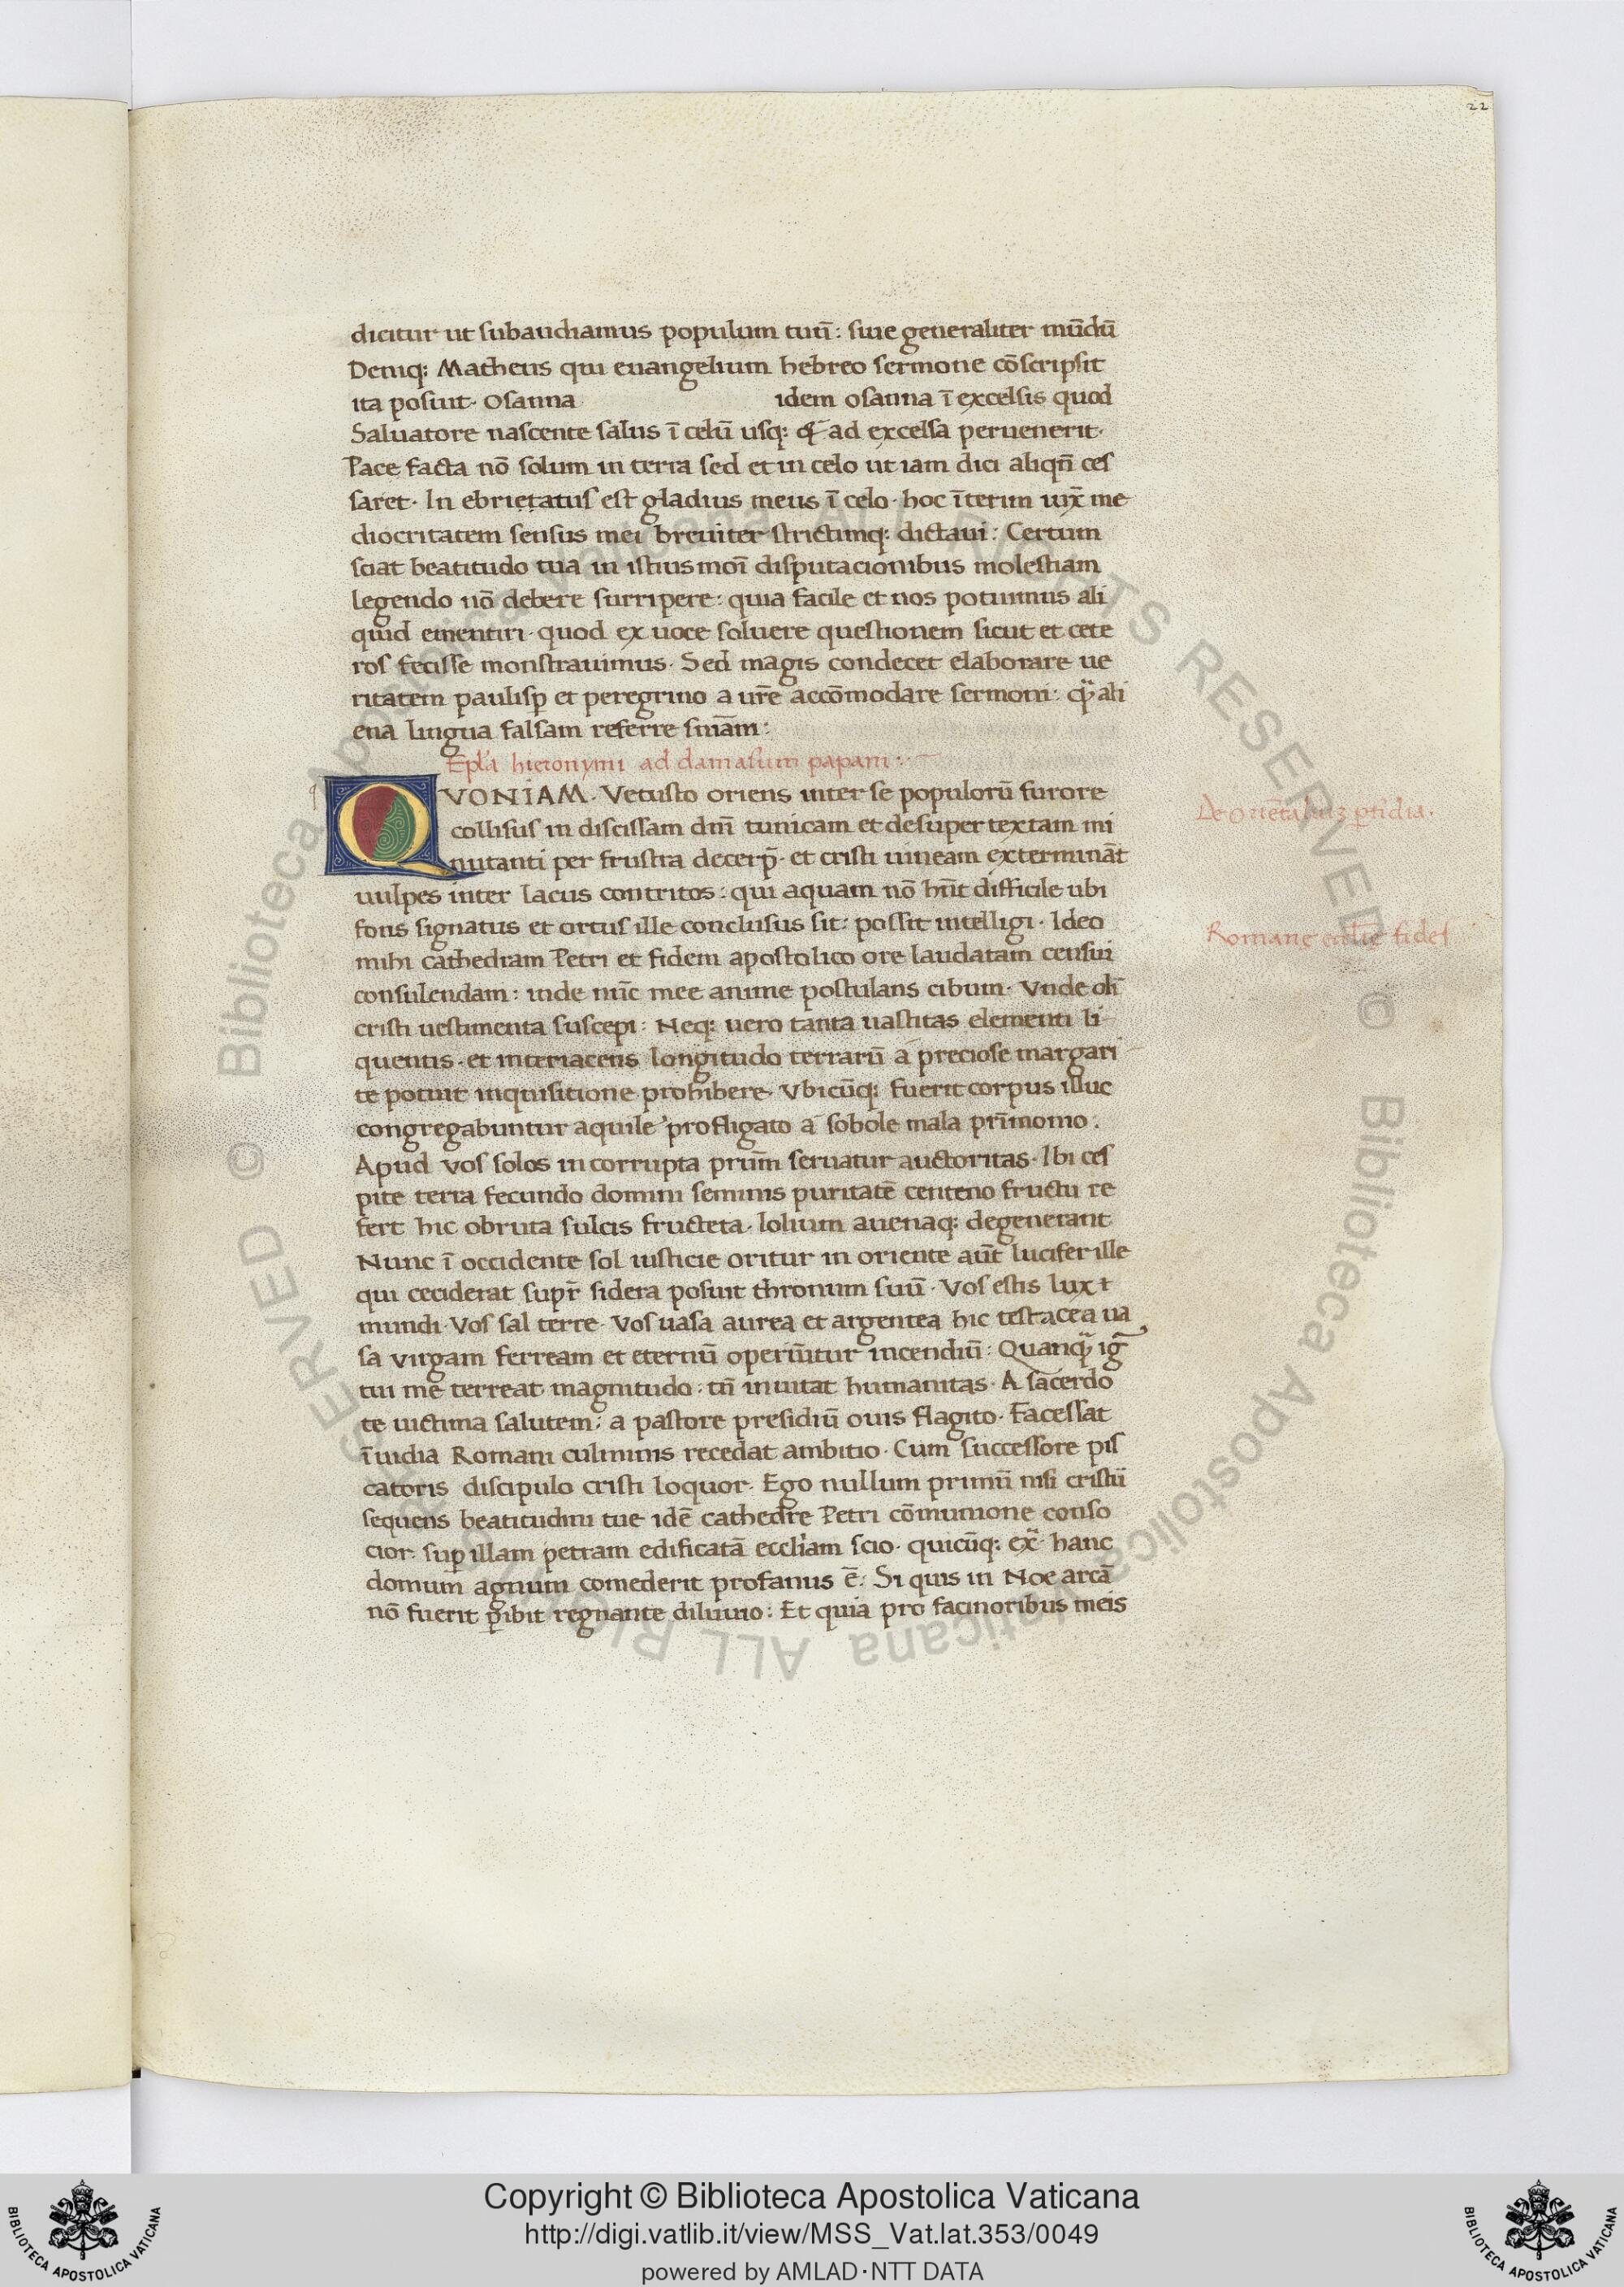 22
dicitur ut subaudiamus populum tuū: siue generaliter mūdū
Deniq: Matheus qui euangelium hebreo sermone cōscripsit
ita posuit· osanna idem osanna ī excelsis quod
Saluatore nascente salus ī celū usq: ad excelsa peruenerit·
Pace facta nō solum in terra sed et in celo ut iam dici aliqn̄ ces
saret· In ebrietatus est gladius meus ī celo· hoc īterim iux̄ me
diocritatem sensus mei breuiter strictimq: dictaui: Certum
sciat beatitudo tua in istiusmoī disputacionibus molestiam
legendo nō debere surripere: quia facile et nos potuimus ali
quid ementiri· quod ex uoce solueret questionem sicut et cete
ros fecisse monstrauimus· Sed magis condecet elaborare ue
ritatem paulisp et peregrino a ur̄e accōmodare sermoni: ali
ena lingua falsam referre sn̄iam:
Epl̄a hieronymi ad damasum papam:
QVONIAM· Vetusto oriens inter se populorū furore
collisus in discissam dn̄i tunicam et desuper textam mi
nutanti per frustra decerp̄· et cristi uineam exterminān̄t
uulpes inter lacus contritos: qui aquam nō hn̄t difficile ubi
fons signatus et ortus ille conclusus sit: possit intelligi· Ideo
mihi cathedram Petri et fidem apostolico ore laudatam censui
consulendam: inde nūc mee anime postulans cibum· Vnde oli
cristi uestimenta suscepi: Neq: uero tanta uastitas elementi li
quentis· et interiacens longitudo terrarū a preciose margari
te potuit inquisitione prohibere· Vbicūq: fuerit corpus illuc
congregabuntur aquile· profligato a sobole mala pr̄imonio:
Apud vos solos incorrupta prūm seruatur auctoritas· Ibi ces
pite terra fecundo domini seminis puritatē centeno fructu re
fert hic obruta sulcis fructeta· lolium auenaq: degenerant
Nunc ī occidente sol iusticie oritur in oriente aūt lucifer ille
qui ceciderat supr̄ sidera posuit thronum suū· Vos estis lux
mundi· Vos sal terre· Vos uasa aurea et argentea hic testacea ua
sa virgam ferream et eternū operiūtur incendiū: Quanq̄ ig̅
tui me terreat magnitudo: tn̄ inuitat humanitas· A sacerdo
te uictima salutem: a pastore presidiū ouis flagito· Facessat
īuidia Romani culminis recedat ambitio· Cum successore pis
catoris discipulo cristi loquor· Ego nullum primū nisi cristū
sequens beatitudini tue idē cathedre Petri cōmunione conso
cior· sup illam petram edificatā eccl̄iam scio· quicūq: ex̄ hanc
domum agnum comederit profanus ē: Si quis in Noe arcā
nō fuerit pibit regnante diluuio: Et quia pro facinoribus meis
De oriētalibus pfidia·
Romane eccl̄ie fides
© Biblioteca Apostolica Vaticana ALL RIGHTS RESERVED © Biblioteca Apostolica Vaticana ALL RIGHTS RESERVED
BIBLIOTECA APOSTOLICA VATICANA
Copyright © Biblioteca Apostolica Vaticana
http://digi.vatlib.it/view/MSS_Vat.lat.353/0049
powered by AMLAD·NTT DATA
BIBLIOTECA APOSTOLICA VATICANA